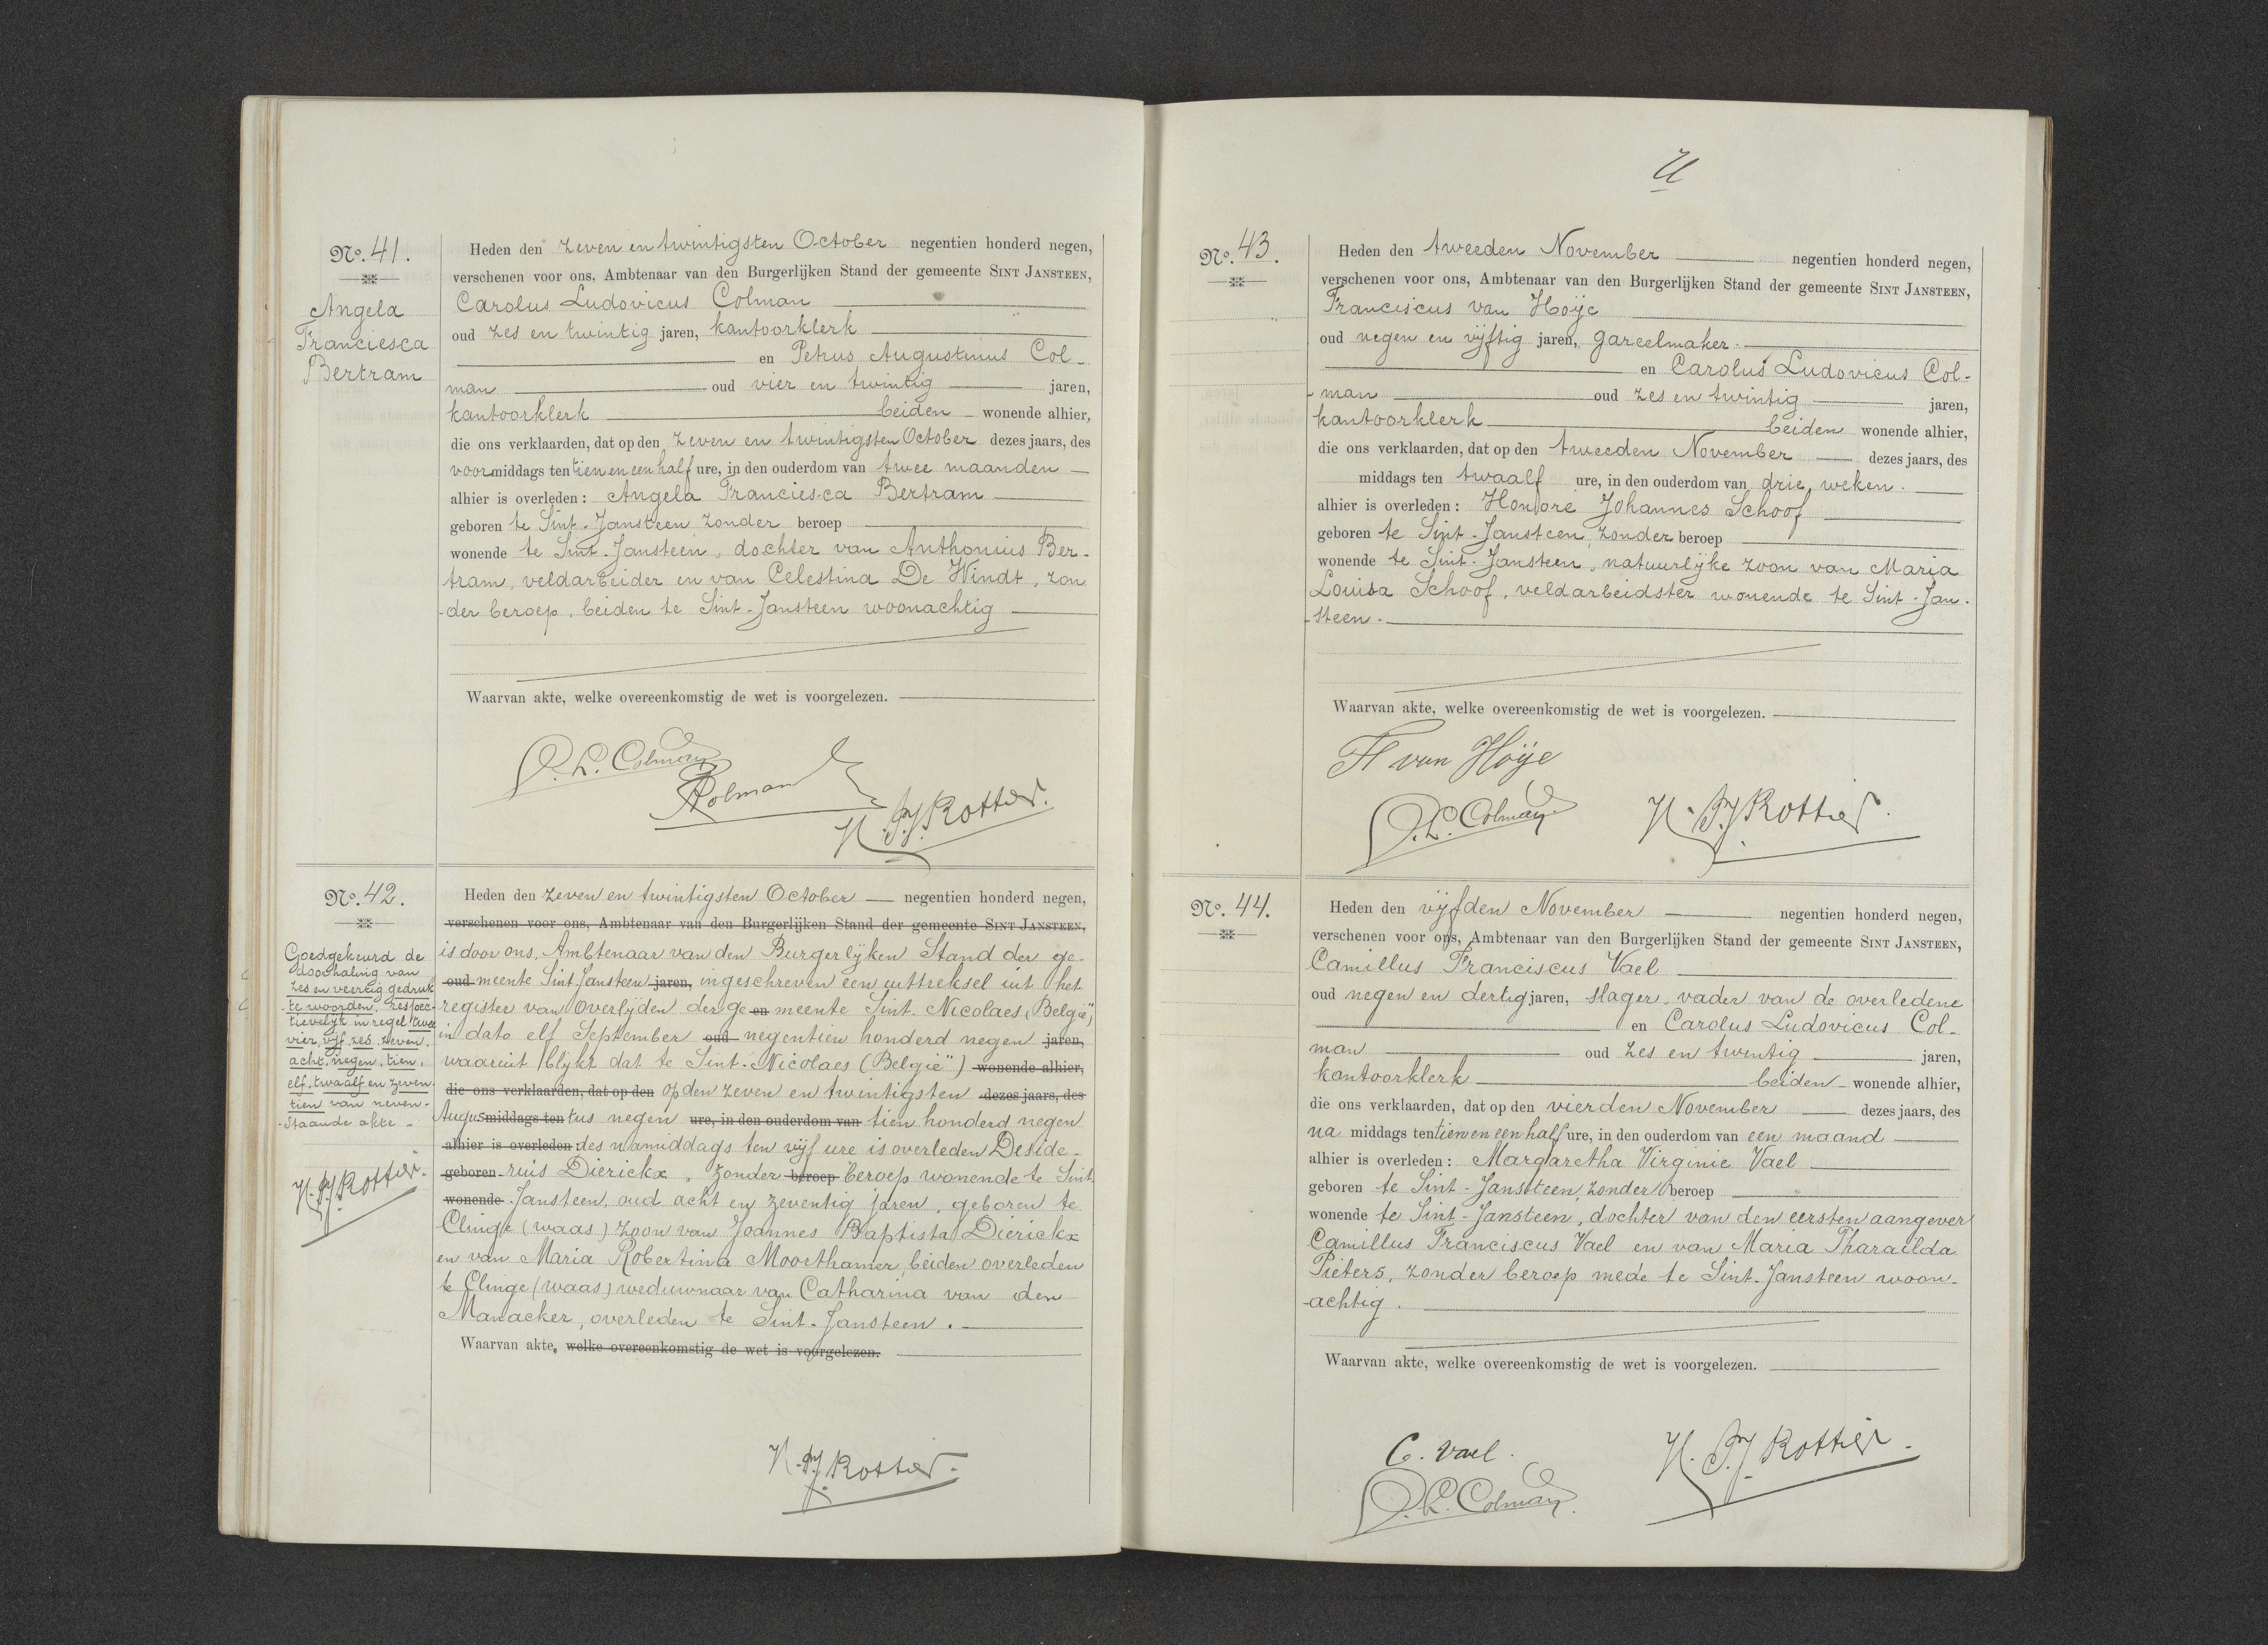 No. 41.
Angela
Franciesca
Bertram
Heden den zeven en twintigsten October negentien honderd negen,
verschenen voor ons, Ambtenaar van den Burgerlijken Stand der gemeente SINT JANSTEEN,
Carolus Ludovicus Colman
oud zes en twintig jaren, kantoorklerk
en Petrus Augustinus Col-
man oud vier en twintig jaren,
kantoorklerk beiden wonende alhier,
die ons verklaarden, dat op den zeven en twintigsten October dezes jaars, des
voormiddags ten tien en een half ure, in den ouderdom van twee maanden
alhier is overleden: Angela Franciesca Bertram
geboren te Sint-Jansteen zonder beroep
wonende te Sint-Jansteen, dochter van Anthonius Ber-
tram, veldarbeider en van Celestina De Windt, zon
-der beroep, beiden te Sint-Jansteen woonachtig
Waarvan akte, welke overeenkomstig de wet is voorgelezen.
C. L. Colman
PColman
H. P. J. Rottier.
No. 42.
Goedgekeurd de
doorhaling van
zes en veertig gedruk
-te woorden, respec-
tievelijk in regel twee
vier, vijf, zes, zeven,
acht, negen, tien,
elf, twaalf en zeven
tien van neven-
-staande akte -
H. P. J. Rottier.
Heden den zeven en twintigsten October negentien honderd negen,
verschenen voor ons, Ambtenaar van den Burgerlijken Stand der gemeente SINT JANSTEEN,
is door ons, Ambtenaar van den Burgerlijken Stand der ge-
oud meente Sint Jansteen jaren, ingeschreven een uittreksel uit het
register van overlijden der ge en meente Sint-Nicolaes (België)
in dato elf September oud negentien honderd negen jaren,
waaruit blijkt dat te Sint-Nicolaes (België) wonende alhier,
die ons verklaarden, dat op den op den zeven en twintigsten dezes jaars, des
Augus middags ten tus negen ure, in den ouderdom van tien honderd negen
alhier is overleden: des namiddags ten vijf ure is overleden Deside-
geboren rius Dierickx, zonder beroep beroep wonende te Sint
wonende Jansteen, oud acht en zeventig jaren, geboren te
Clinge (waas) zoon van Joannes Baptista Dierickx
en van Maria Robertina Moorthamer, beiden overleden
te Clinge (waas) weduwnaar van Catharina van den
Manacker, overleden te Sint-Jansteen.
Waarvan akte, welke overeenkomstig de wet is voorgelezen.
H. P. J. Rottier.
No. 43.
Heden den tweeden November negentien honderd negen,
verschenen voor ons, Ambtenaar van den Burgerlijken Stand der gemeente SINT JANSTEEN,
Franciscus van Hoÿe
oud negen en vijftig jaren, gareelmaker.
en Carolus Ludovicus Col-
-man oud zes en twintig jaren,
kantoorklerk beiden wonende alhier,
die ons verklaarden, dat op den tweeden November dezes jaars, des
middags ten twaalf ure, in den ouderdom van drie weken.
alhier is overleden: Honoré Johannes Schoof
geboren te Sint-Jansteen, zonder beroep
wonende te Sint-Jansteen, natuurlijke zoon van Maria
Louisa Schoof, veldarbeidster wonende te Sint-Jan-
-steen.
Waarvan akte, welke overeenkomstig de wet is voorgelezen.
F van Hoÿe
C. L. Colman
H. P. J. Rottier.
No. 44.
Heden den vijfden November negentien honderd negen,
verschenen voor ons, Ambtenaar van den Burgerlijken Stand der gemeente SINT JANSTEEN,
Camillus Franciscus Vael
oud negen en dertig jaren, slager, vader van de overledene
en Carolus Ludovicus Col-
man oud zes en twintig jaren,
kantoorklerk beiden wonende alhier,
die ons verklaarden, dat op den vierden November dezes jaars, des
na middags ten tien en een half ure, in den ouderdom van een maand
alhier is overleden: Margaretha Virginie Vael
geboren te Sint-Jansteen, zonder beroep
wonende te Sint-Jansteen, dochter van den eersten aangever
Camillus Franciscus Vael en van Maria Tharailda
Pieters, zonder beroep mede te Sint-Jansteen woon-
-achtig.
Waarvan akte, welke overeenkomstig de wet is voorgelezen.
C. Vael.
C. L. Colman.
H. P. J. Rottier.